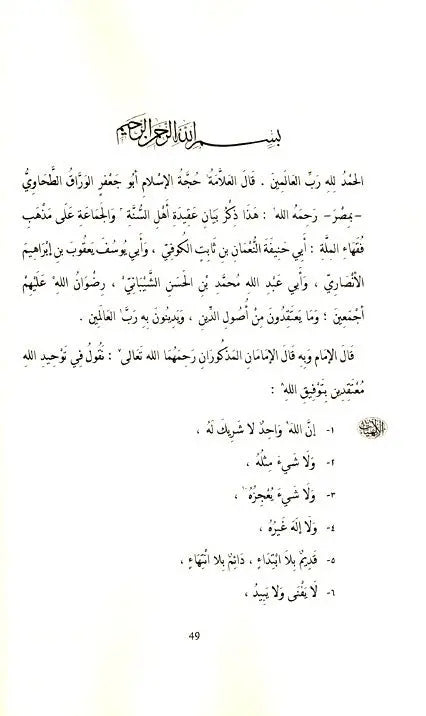 بسم الله الرحمن الرحيم
الحَمْدُ لله رَبِّ العَالَمِينَ . قَالَ العَلَّامَةُ حُجَّةُ الإِسْلامِ أبُو جَعْفَرٍ الوَرَّاقُ الطَّحَاوِيُّ
-بِمِصْرَ- رَحِمَهُ الله : هَذَا ذِكْرُ بَيَانِ عَقِيدَةِ أَهْلِ السُّنَّةِ وَالجَمَاعَةِ عَلَى مَذْهَبِ
فُقَهَاءِ المِلَّةِ : أَبِي حَنِيفَةَ النُّعْمَانِ بنِ ثَابِتٍ الكُوفِيِّ ، وَأَبِي يُوسُفَ يَعْقُوبَ بنِ إبْرَاهِيمَ
الأَنْصَارِيِّ ، وَأَبِي عَبْدِ اللهِ مُحَمَّدِ بْنِ الحَسَنِ الشَّيْبَانِيِّ ، رِضْوَانُ اللهِ عَلَيْهِمْ
أَجْمَعِينَ ؛ وَمَا يَعْتَقِدُونَ مِنْ أُصُولِ الدِّينِ ، وَيَدِينُونَ بِهِ رَبَّ العَالَمِين .
قَالَ الإمَام وَبِهِ قَالَ الإمَامَانِ المَذْكُورَانِ رَحِمَهُمَا الله تَعَالى : نَقُولُ فِي تَوْحِيدِ اللهِ
مُعْتَقِدِينَ بِتَوْفِيقِ اللهِ :
١- إنَّ اللهَ وَاحِدٌ لا شَرِيكَ لَهُ ،
٢- وَلَا شَيْءَ مِثْلُهُ ،
٣- وَلَا شَيْءَ يُعْجِزُهُ ،
٤- وَلَا إلَهَ غَيْرُهُ ،
٥- قَدِيمٌ بِلاَ ابْتِدَاءٍ ، دَائِمٌ بِلا انْتِهَاءٍ ،
٦- لَا يَفْنَى وَلا يَبِيدُ ،
49